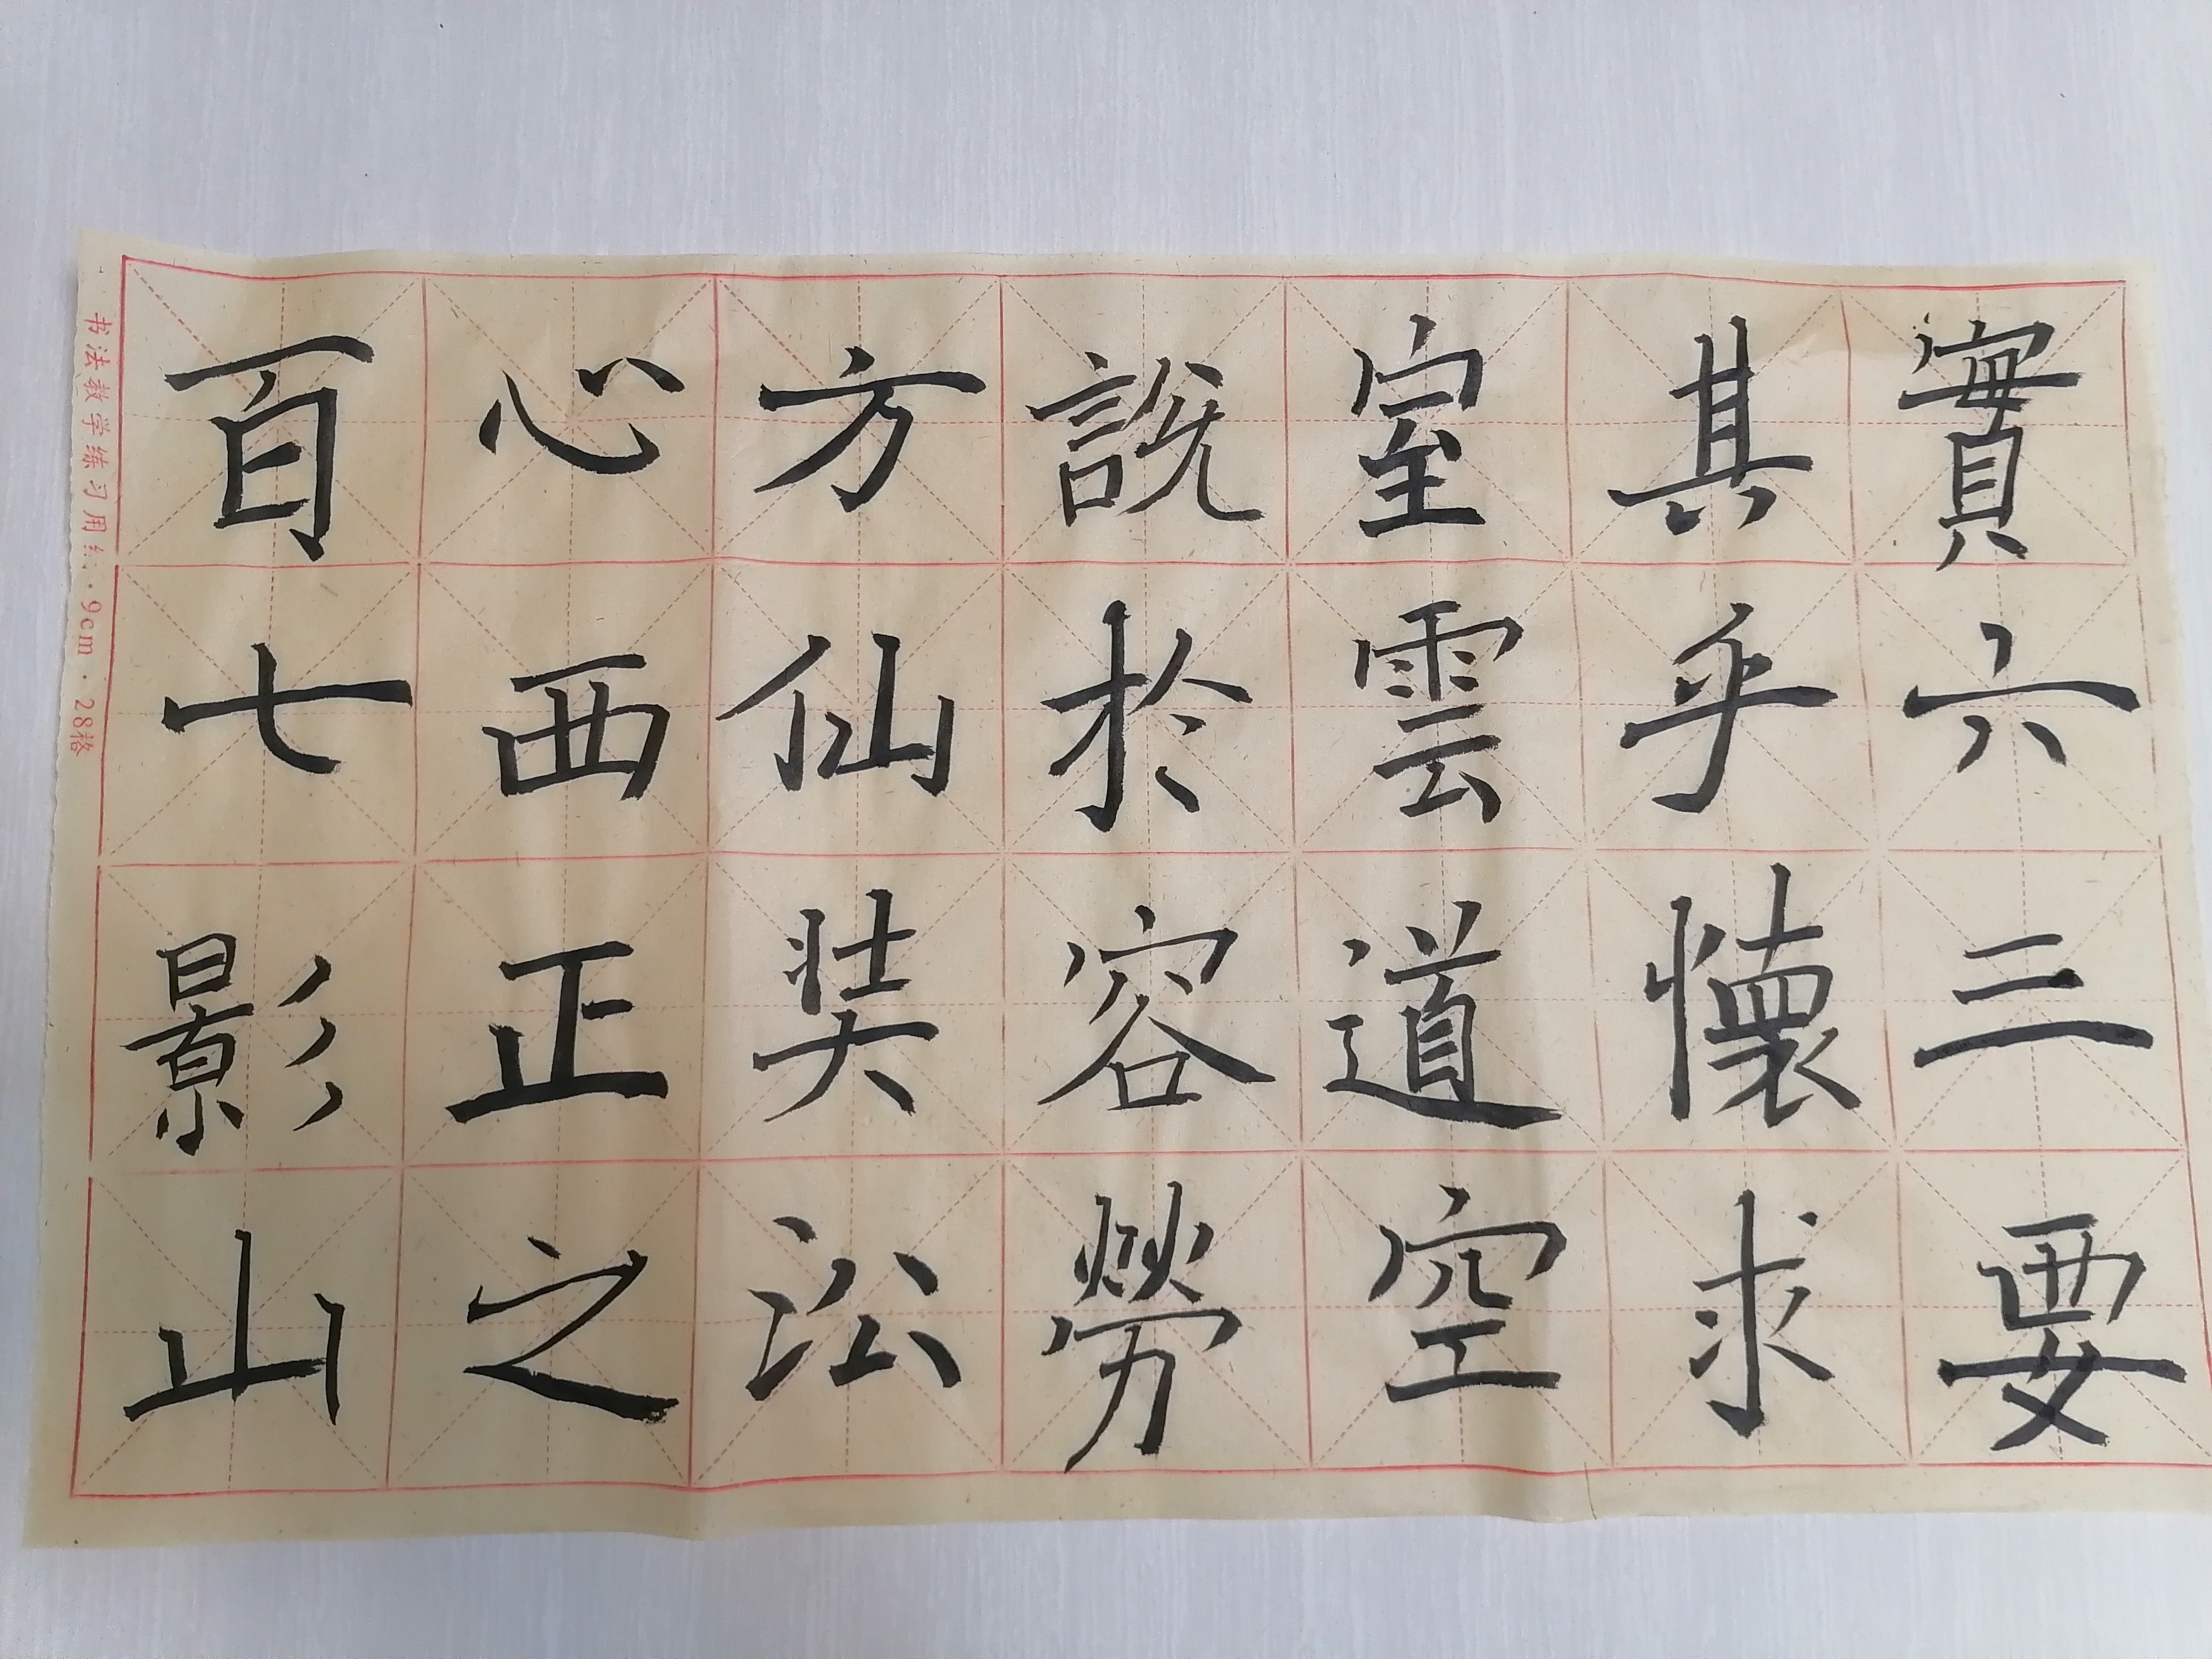 實六三要
其乎懷求
室雲道空
說於容勞
方仙奘沿
心西正之
百七影山
书法教学练习用纸·9cm·28格